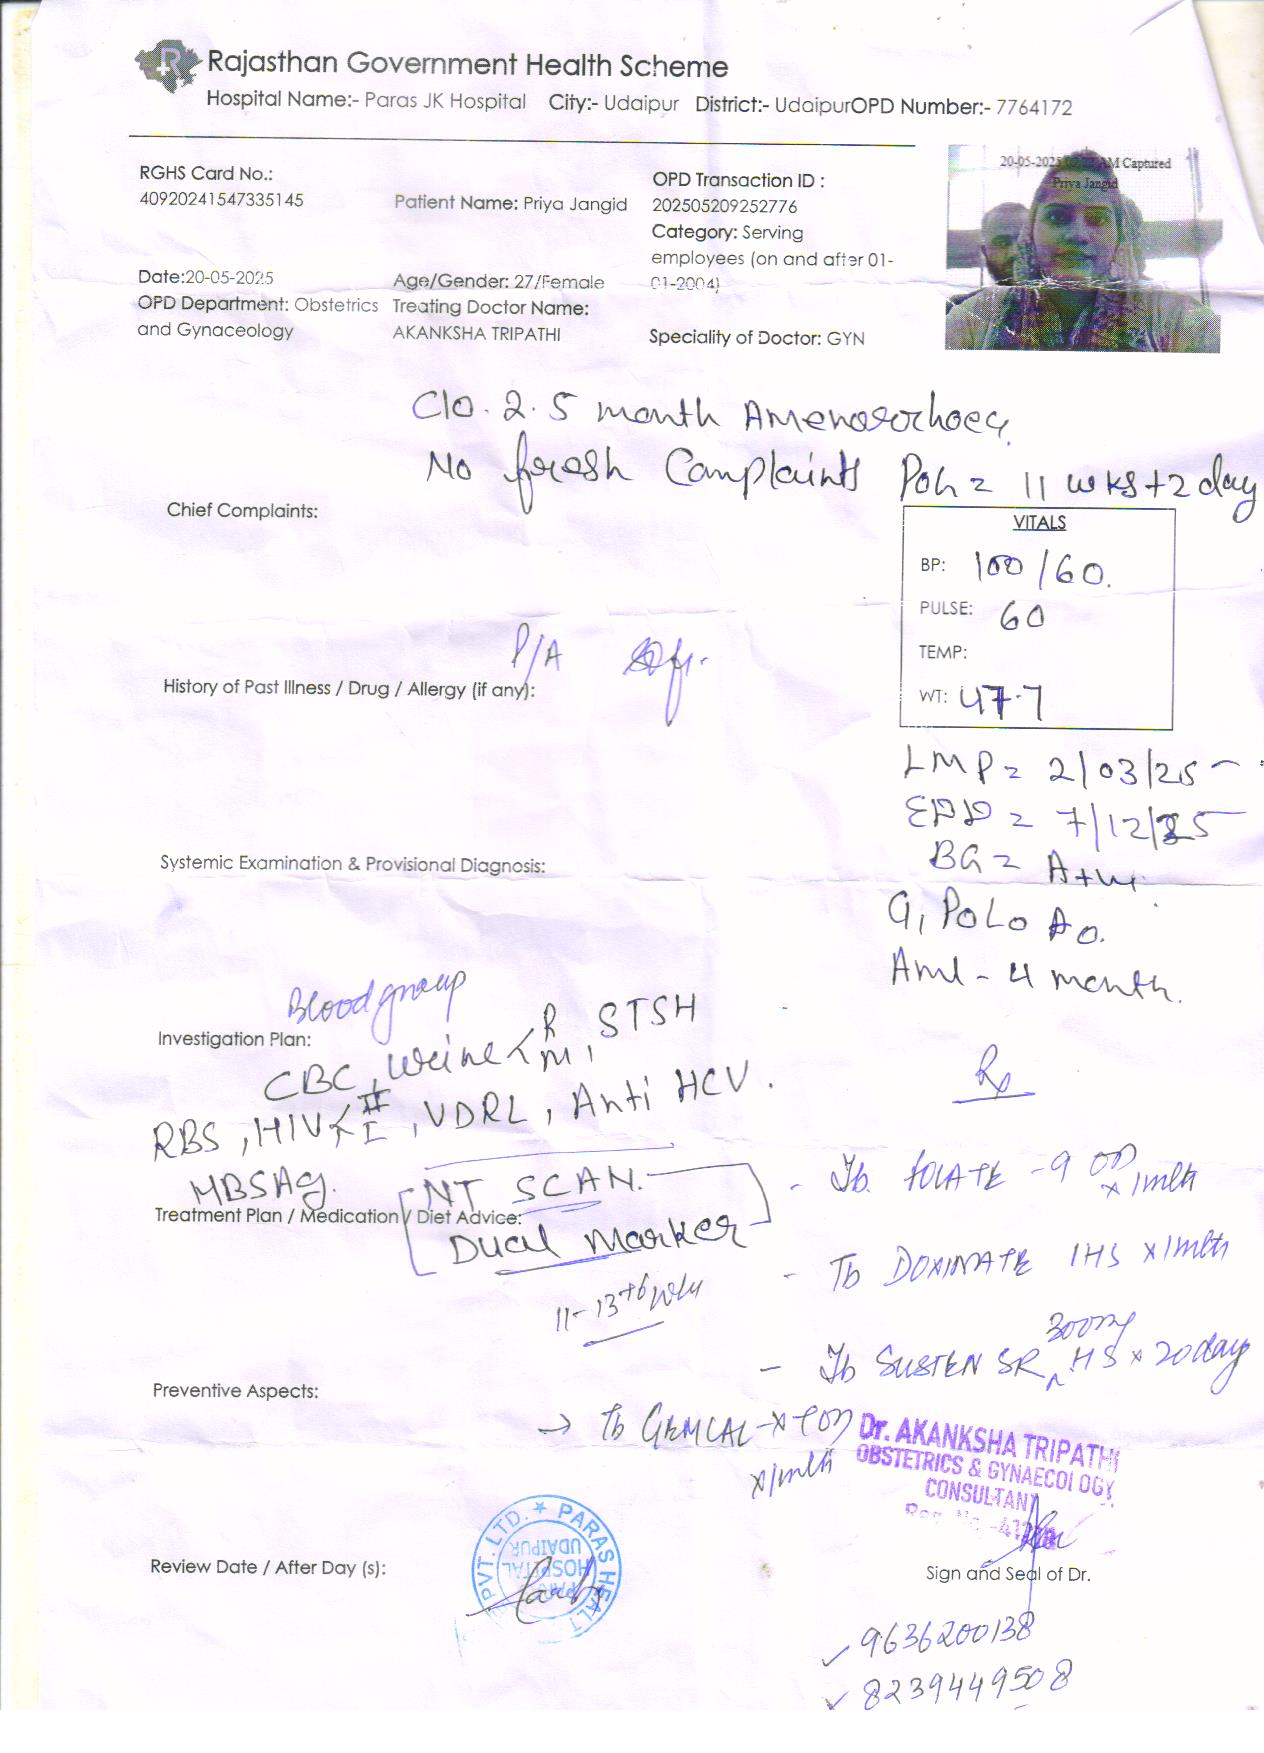 Rajasthan Government Health Scheme
Hospital Name:- Paras JK Hospital City:- Udaipur District:- UdaipurOPD Number:- 7764172
RGHS Card No.:
40920241547335145
Patient Name: Priya Jangid
OPD Transaction ID :
202505209252776
Category: Serving
employees (on and after 01-
01-2004)
20-05-2025 AM Captured
Priya Jangid
Date:20-05-2025
Age/Gender: 27/Female
OPD Department: Obstetrics
and Gynaceology
Treating Doctor Name:
AKANKSHA TRIPATHI
Speciality of Doctor: GYN
C/o. 2.5 month Amenorrhoea
No fresh Complaints POG = 11 wks+2 day
Chief Complaints:
VITALS
BP: 100/60.
PULSE: 60
TEMP:
WT: 47.7
P/A
History of Past Illness / Drug / Allergy (if any):
LMP = 2/03/25
EDD = 7/12/25
BG = A+ve
G1 P0L0 A0.
Aml - 4 month.
Systemic Examination & Provisional Diagnosis:
Blood group
Investigation Plan:
CBC, Urine < R M, STSH
RBS, HIV < II I, VDRL, Anti HCV.
HBSAg.
NT SCAN.
Treatment Plan / Medication / Diet Advice:
Dual Marker
11-13+6 wks
Rx
- Tb. FOLATE -9 OD x 1mth
- Tb DOXINATE 1HS x 1mth
- Tb SUSTEN SR 300mg HS x 20day
Preventive Aspects:
→ Tb GEMCAL-
x 1mth
Dr. AKANKSHA TRIPATHI
OBSTETRICS & GYNAECOLOGY
CONSULTANT
PVT. LTD. ★ PARAS HEALT
PARAS
HOSPITAL
UDAIPUR
Review Date / After Day (s):
Sign and Seal of Dr.
9636200138
8239449508